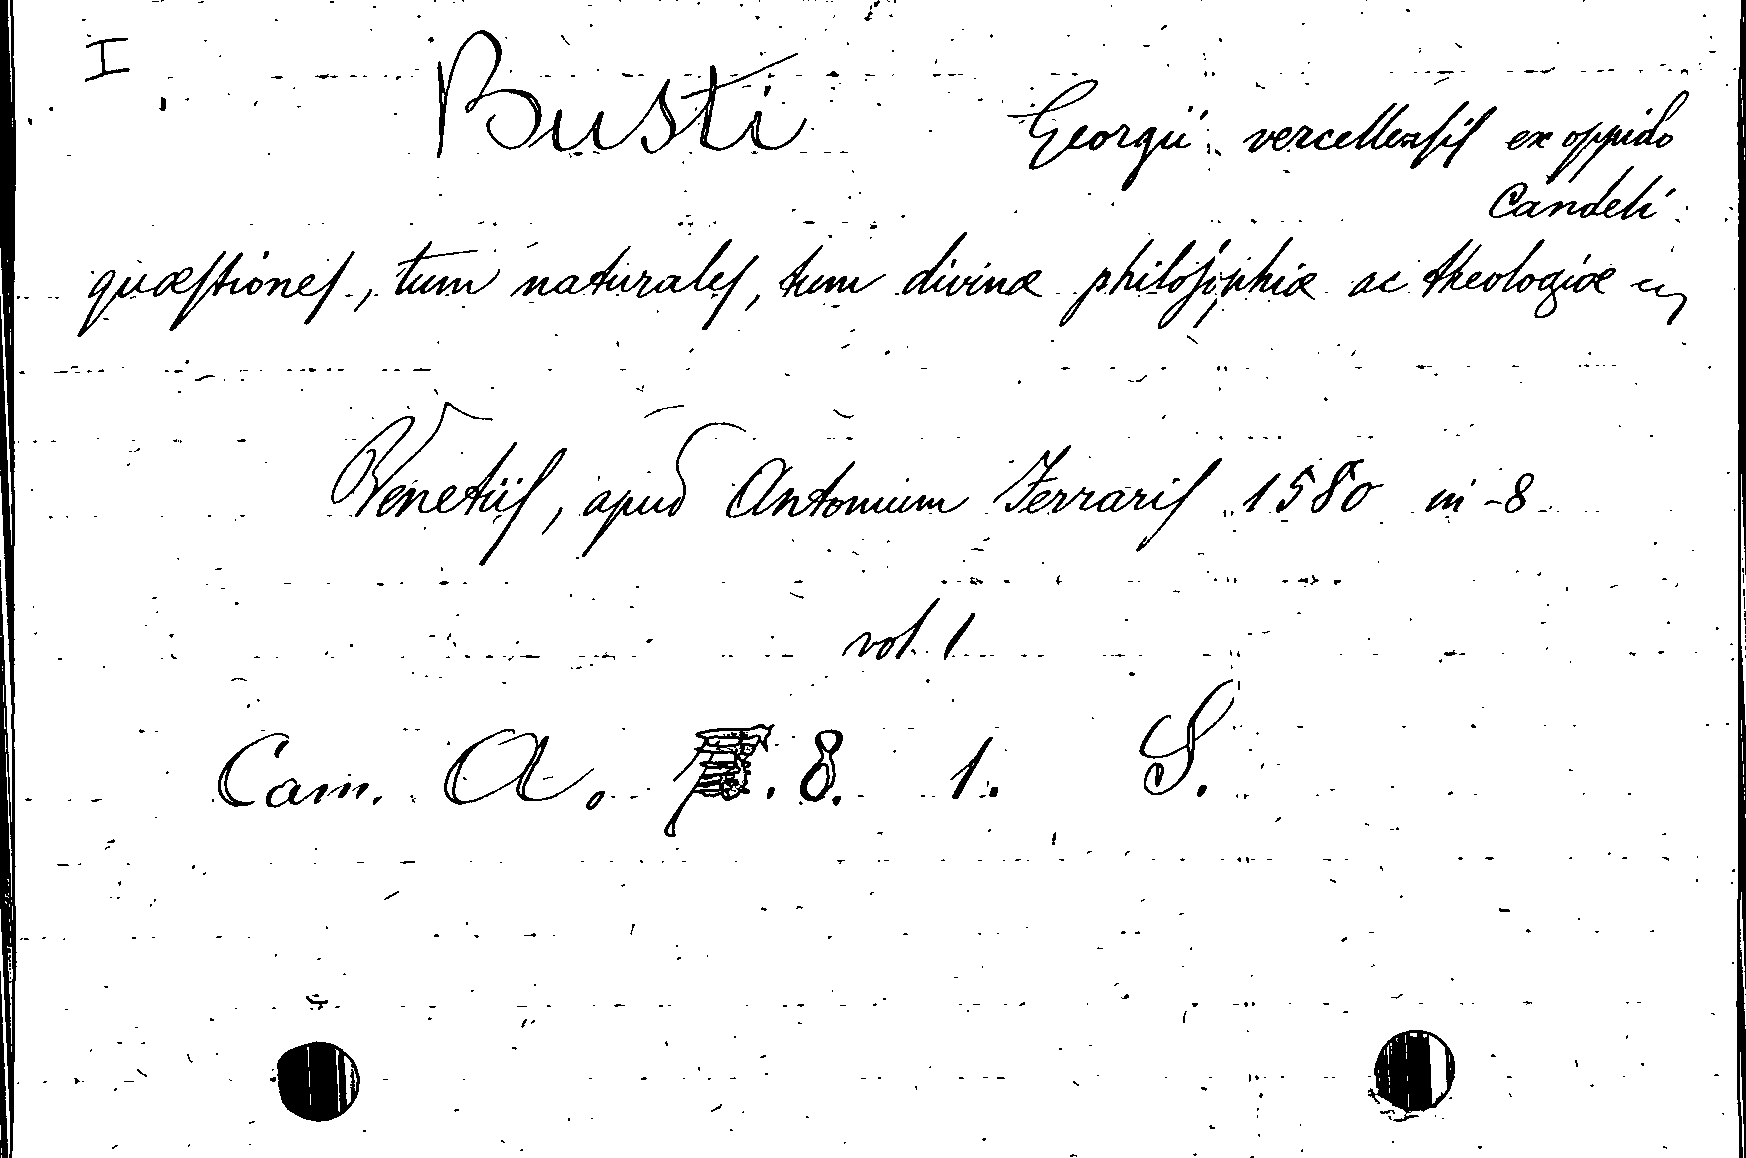 I
Busti Georgii vercellensis ex oppido
Candeli
quæstiones, tum naturales, tum divinæ philosophiæ ac theologiæ
Venetiis, apud Antonium Ferraris 1580 in-8
vol. 1
Cam. A. 8. 1. S.